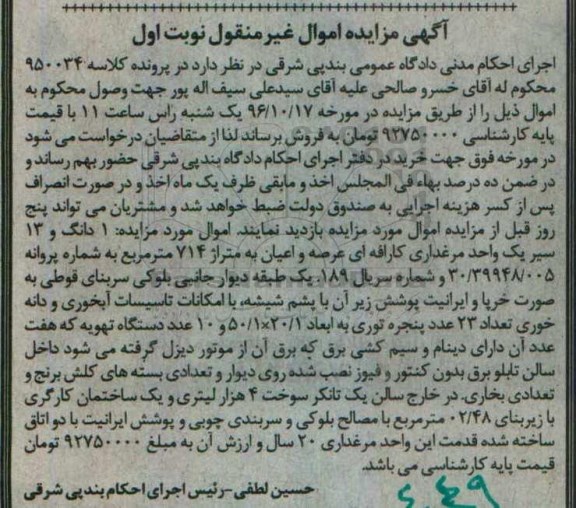 آگهی مزایده اموال غیر منقول نوبت اول
اجرای احکام مدنی دادگاه عمومی بندپی شرقی در نظر دارد در پرونده کلاسه ۹۵۰۰۳۴
محکوم له آقای خسرو صالحی علیه آقای سیدعلی سیف اله پور جهت وصول محکوم به
اموال ذیل را از طریق مزایده در مورخه ۹۶/۱۰/۱۷ یک شنبه راس ساعت ۱۱ با قیمت
پایه کارشناسی ۹۲۷۵۰۰۰۰ تومان به فروش برساند لذا از متقاضیان درخواست می شود
در مورخه فوق جهت خرید در دفتر اجرای احکام دادگاه بندپی شرقی حضور بهم رساند و
در ضمن ده درصد بهاء فی المجلس اخذ و مابقی ظرف یک ماه اخذ و در صورت انصراف
پس از کسر هزینه اجرایی به صندوق دولت ضبط خواهد شد و مشتریان می تواند پنج
روز قبل از مزایده اموال مورد مزایده بازدید نمایند. اموال مورد مزایده: ۱ دانگ و ۱۳
سیر یک واحد مرغداری کارافه ای عرصه و اعیان به متراژ ۷۱۴ مترمربع به شماره پروانه
۳۰/۳۹۹۴۸/۰۰۵ و شماره سریال ۱۸۹. یک طبقه دیوار جانبی بلوکی سربنای قوطی به
صورت خرپا و ایرانیت پوشش زیر آن با پشم شیشه، با امکانات تاسیسات آبخوری و دانه
خوری تعداد ۲۳ عدد پنجره توری به ابعاد ۲۰/۱×۵۰/۱ و ۱۰ عدد دستگاه تهویه که هفت
عدد آن دارای دینام و سیم کشی برق که برق آن از موتور دیزل گرفته می شود داخل
سالن تابلو برق بدون کنتور و فیوز نصب شده روی دیوار و تعدادی بسته های کلش برنج و
تعدادی بخاری. در خارج سالن یک تانکر سوخت ۴ هزار لیتری و یک ساختمان کارگری
با زیربنای ۰۲/۴۸ مترمربع با مصالح بلوکی و سربندی چوبی و پوشش ایرانیت با دو اتاق
ساخته شده قدمت این واحد مرغداری ۲۰ سال و ارزش آن به مبلغ ۹۲۷۵۰۰۰۰ تومان
قیمت پایه کارشناسی می باشد.
حسین لطفی-رئیس اجرای احکام بندپی شرقی